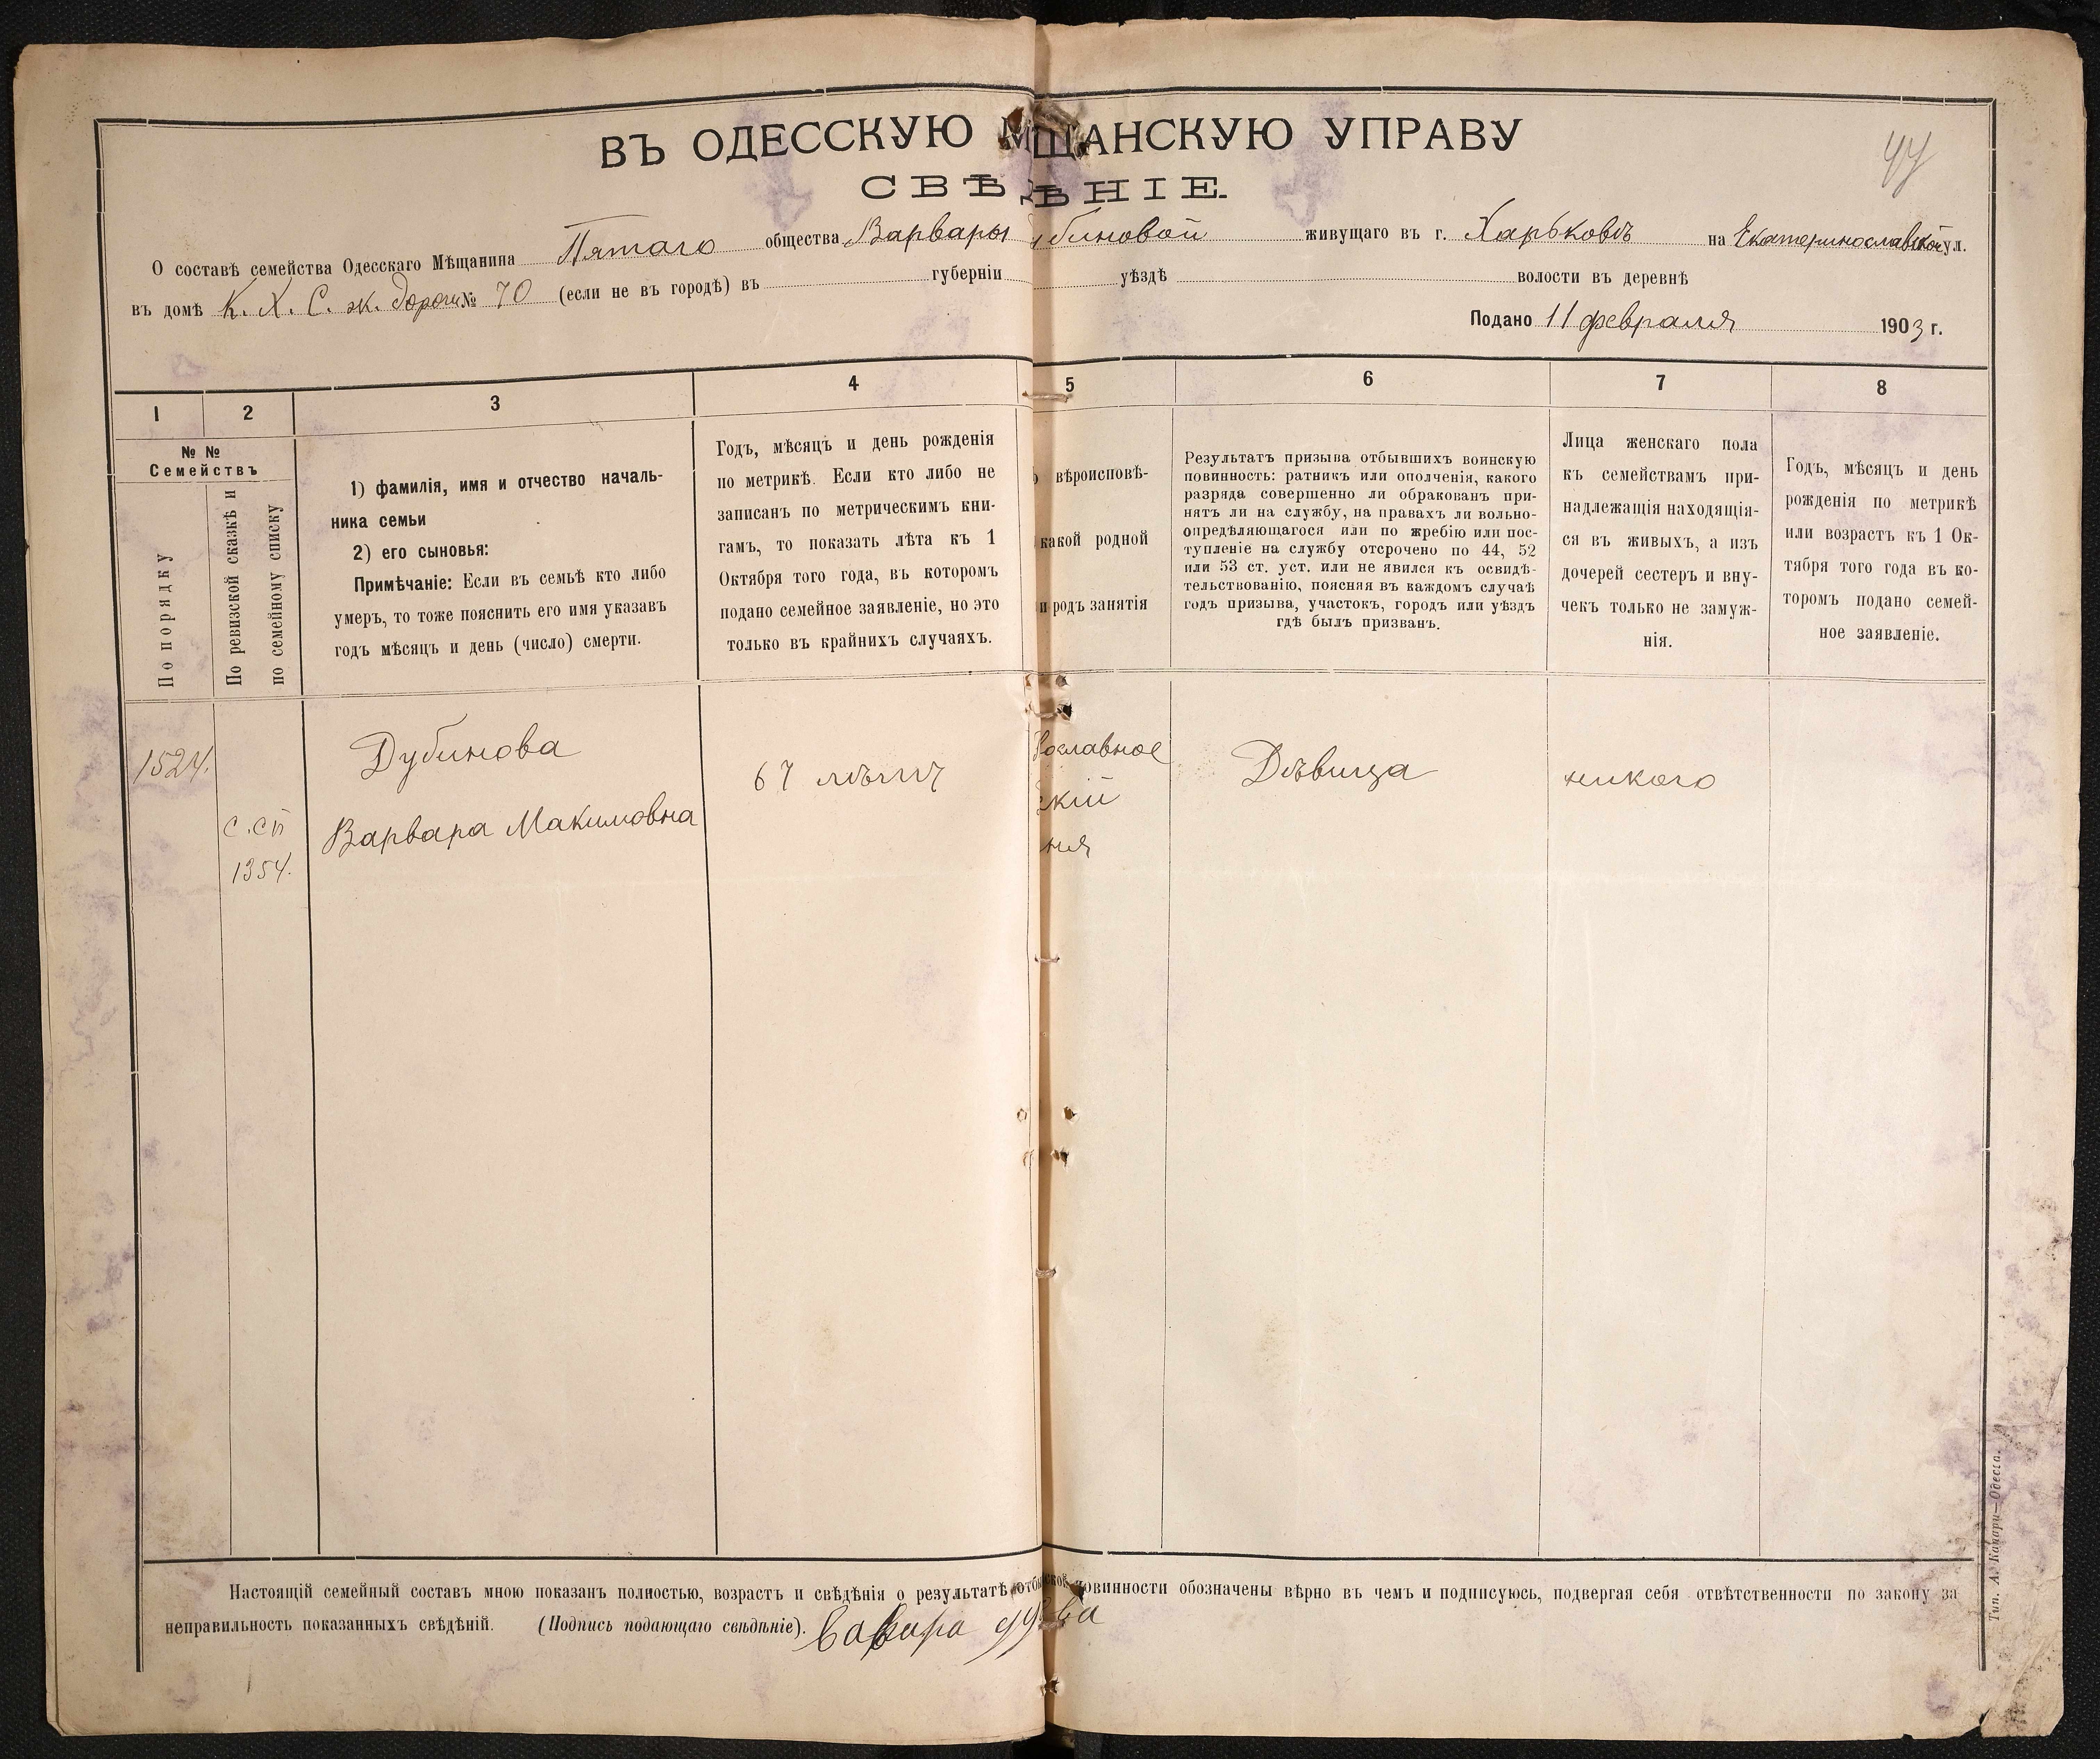 ВЪ ОДЕССКУЮ МЩАНСКУЮ УПРАВУ
44
СВѢДѢНІЕ.
О составѣ семейства Одесскаго Мѣщанина Пятаго общества Варвары биновой живущаго въ г. Харьковѣ на Екатеринославской ул.
въ домѣ К. Х. С. ж. дороги № 70 (если не въ городѣ) въ губерніи уѣздѣ волости въ деревнѣ
Подано 11 февраля 1903 г.
1 2 3 4 5 6 7 8
№ №
Семействъ
По порядку
По ревизской сказкѣ и
по семейному списку
1) фамилія, имя и отчество началь-
ника семьи
2) его сыновья:
Примѣчаніе: Если въ семьѣ кто либо
умеръ, то тоже пояснить его имя указавъ
годъ мѣсяцъ и день (число) смерти.
Годъ, мѣсяцъ и день рожденія
по метрикѣ. Если кто либо не
записанъ по метрическимъ кни-
гамъ, то показать лѣта къ 1
Октября того года, въ которомъ
подано семейное заявленіе, но это
только въ крайнихъ случаяхъ.
вѣроисповѣ-
какой родной
и родъ занятія
Результатъ призыва отбывшихъ воинскую
повинность: ратникъ или ополченія, какого
разряда совершенно ли обракованъ при-
нятъ ли на службу, на правахъ ли вольно-
опредѣляющагося или по жребію или пос-
тупленіе на службу отсрочено по 44, 52
или 53 ст. уст. или не явился къ освидѣ-
тельствованію, поясняя въ каждомъ случаѣ
годъ призыва, участокъ, городъ или уѣздъ
гдѣ былъ призванъ.
Лица женскаго пола
къ семействамъ при-
надлежащія находящія-
ся въ живыхъ, а изъ
дочерей сестеръ и вну-
чекъ только не замуж-
нія.
Годъ, мѣсяцъ и день
рожденія по метрикѣ
или возрастъ къ 1 Ок-
тября того года въ ко-
торомъ подано семей-
ное заявленіе.
1524.
с.сп
1354.
Дубинова
Варвара Макимовна
67 лѣтъ
ославное
скій
ня
Дѣвица
никого
Настоящій семейный составъ мною показанъ полностью, возрастъ и свѣдѣнія о результатѣ отбы ской повинности обозначены вѣрно въ чемъ и подписуюсь, подвергая себя отвѣтственности по закону за
неправильность показанныхъ свѣдѣній. (Подпись подающаго свѣдѣніе).
Тип. А. Капари—Одесса.